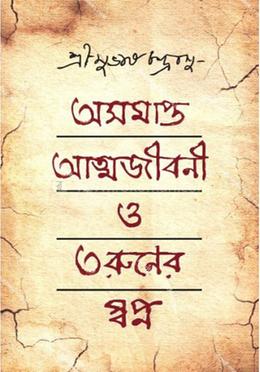 শ্রীসুভাষ চন্দ্র বসু
অসমাপ্ত
আত্মজীবনী
ও
তরুনের
স্বপ্ন